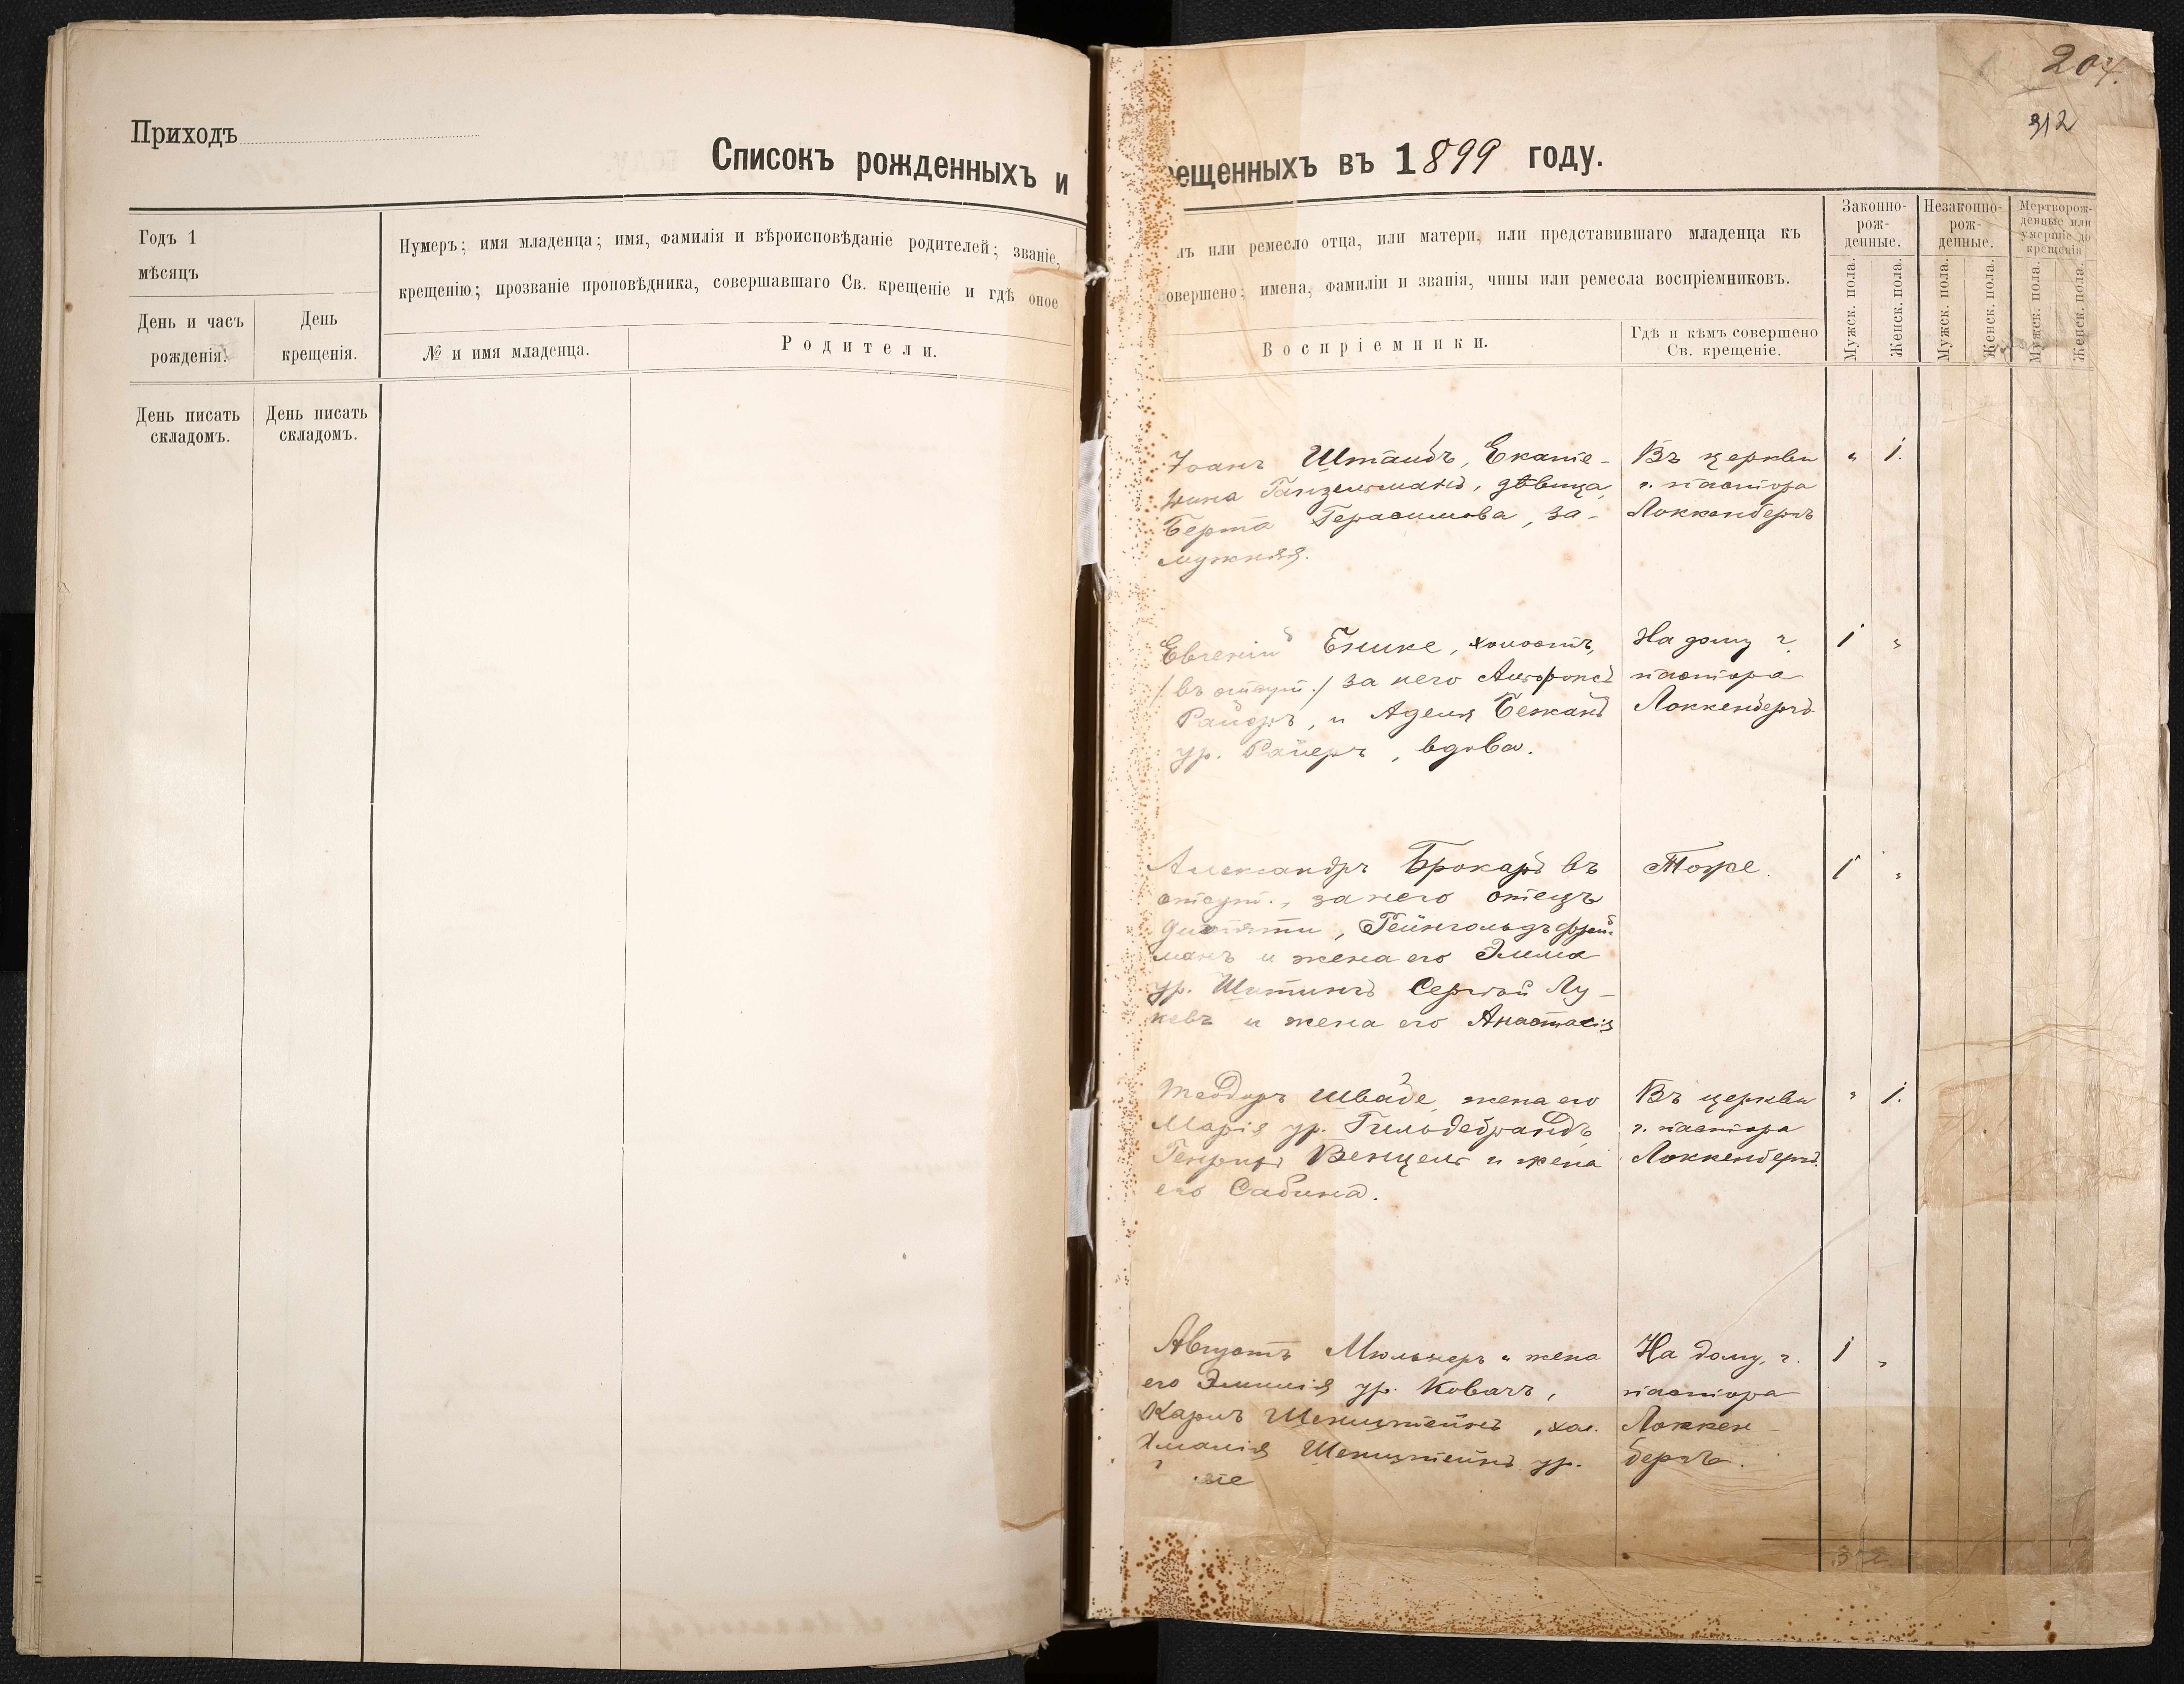 Приходъ
Списокъ рожденныхъ и
Годъ 1
мѣсяцъ
Нумеръ; имя младенца; имя, фамилія и вѣроисповѣданіе родителей; званіе,
крещенію; прозваніе проповѣдника, совершавшаго Св. крещеніе и гдѣ оное
День и часъ
рожденія.
День
крещенія.
№ и имя младенца.
Родители.
День писать
складомъ.
День писать
складомъ.
204.
312
рещенныхъ въ 1899 году.
нъ или ремесло отца, или матери, или представившаго младенца къ
совершено; имена, фамиліи и званія, чины или ремесла воспріемниковъ.
Воспріемники.
Гдѣ и кѣмъ совершено
Св. крещеніе.
Законно-
рож-
денные.
Незаконно-
рож-
денные.
Мертворож-
денные или
умершіе до
крещенія
Мужск. пола.
Женск. пола.
Мужск. пола.
Женск. пола.
Мужск. пола.
Женск. пола.
Іоанъ Штаубъ, Екате-
рина Ганзельманъ, дѣвица,
Берта Герасимова, за-
мужняя.
Въ церкви
г. пастора
Локкенбергъ
" 1.
Евгеній Енике, холостъ,
/въ отсут./ за него Альфонсъ
Райеръ, и Аделя Бежанъ
ур. Райеръ, вдова.
На дому г.
пастора
Локкенбергъ
1 "
Александръ Брокаръ въ
отсут., за него отецъ
дитяти, Рейнгольдъ Фрей-
манъ и жена его Эмма
ур. Сергѣй Лу-
кевъ и жена его Анастасія
Тоже.
1 "
Теодоръ Шваде, жена его
Марія ур. Гильдебрандъ,
Генрихъ Венцель и жена
его Сабина.
Въ церкви
г. пастора
Локкенбергъ.
" 1.
Августъ Мюльнеръ и жена
его Эмилія ур. Ковачъ,
Карлъ Шенштейнъ, хол.
Амалія Шенштейнъ ур.
На дому, г.
пастора
Локкен-
бергъ.
1 "
3 2.